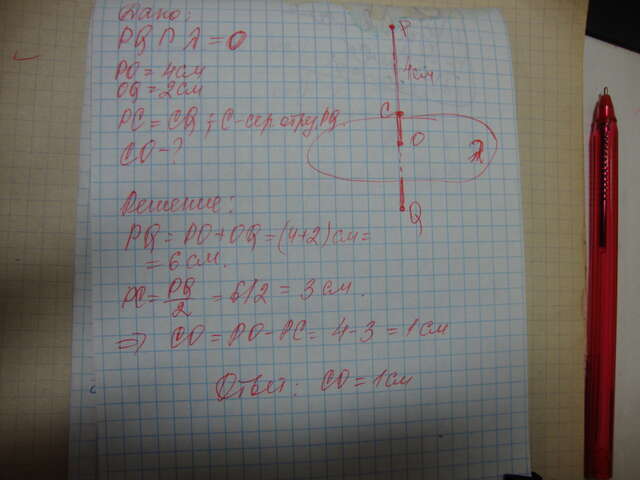 Дано:
PQ ∩ λ = O
PO = 4 см
OQ = 2 см
PC = CQ; C - сер. отр. PQ.
CO - ?
P
4 см
C
O
λ
Q
Решение:
PQ = PO + OQ = (4+2) см =
= 6 см.
PC = PQ/2 = 6/2 = 3 см.
⇒ CO = PO - PC = 4 - 3 = 1 см
Ответ: CO = 1 см